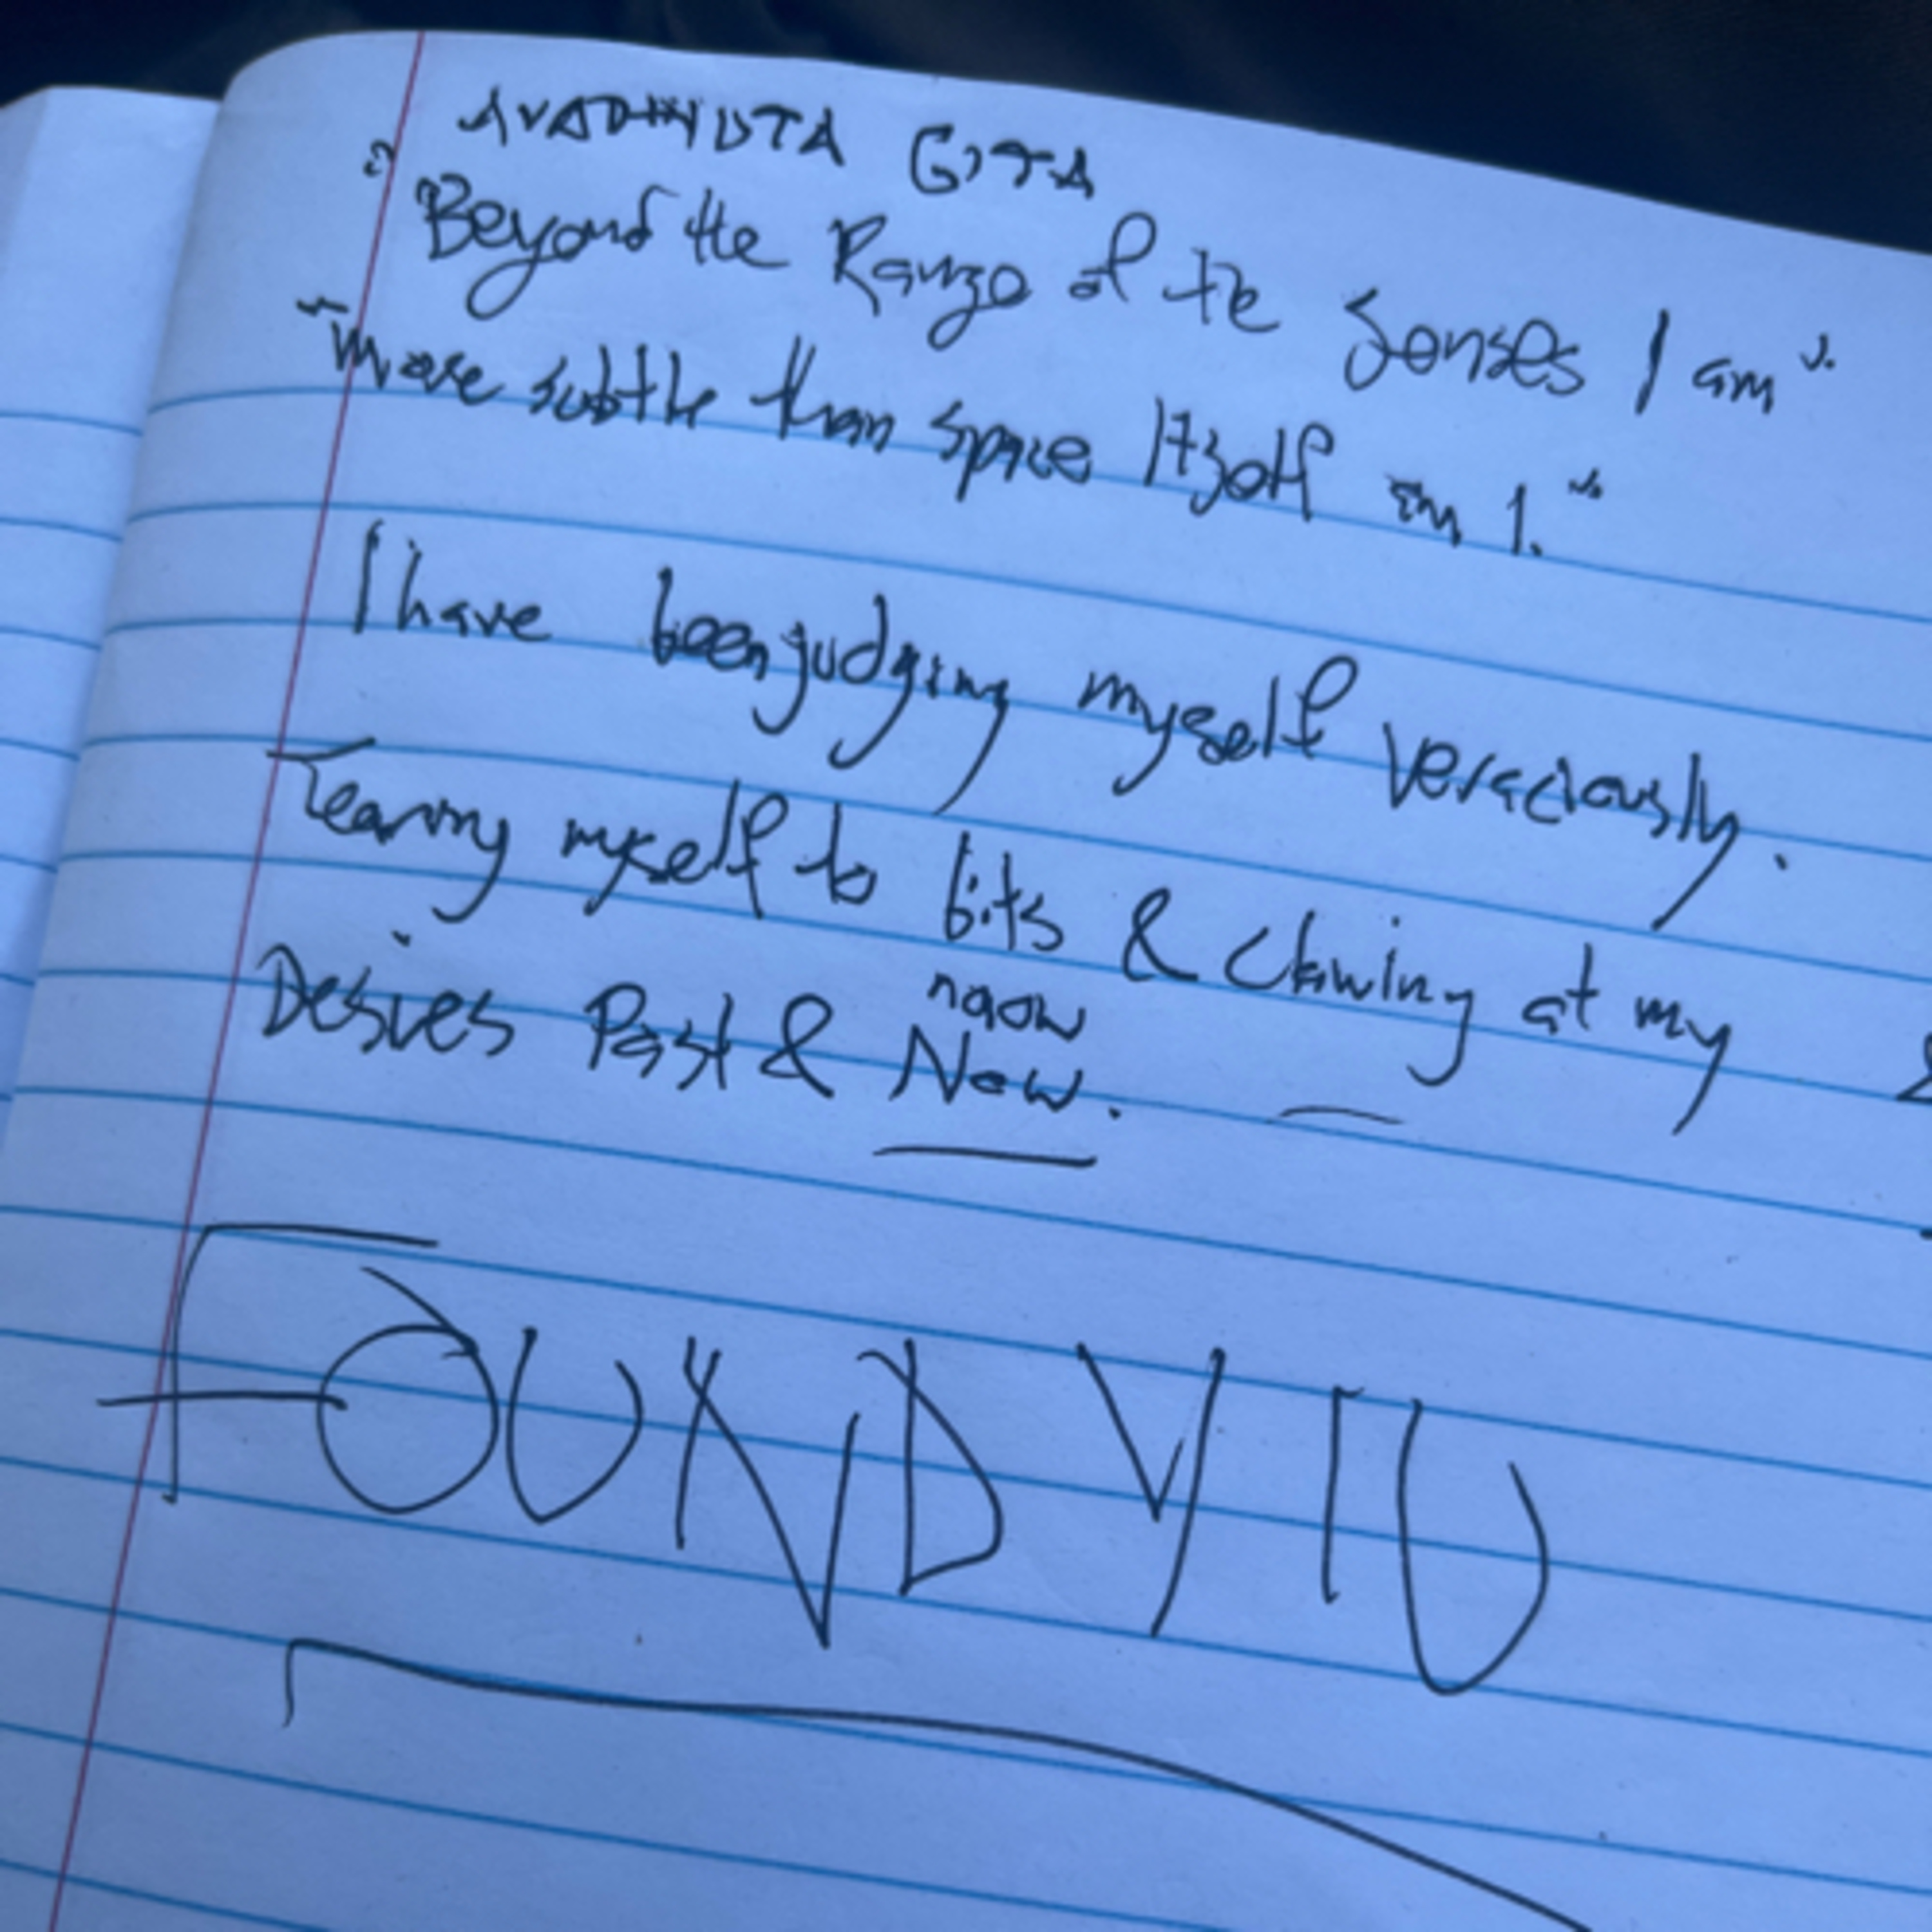 AVADHUTA GITA
"Beyond the Range of the Senses I am".
"More subtle than space Itself am I."
I have been judging myself veraciously.
Tearing myself to bits & clawing at my
Desires Past & Now.
naow
FOUND YIU